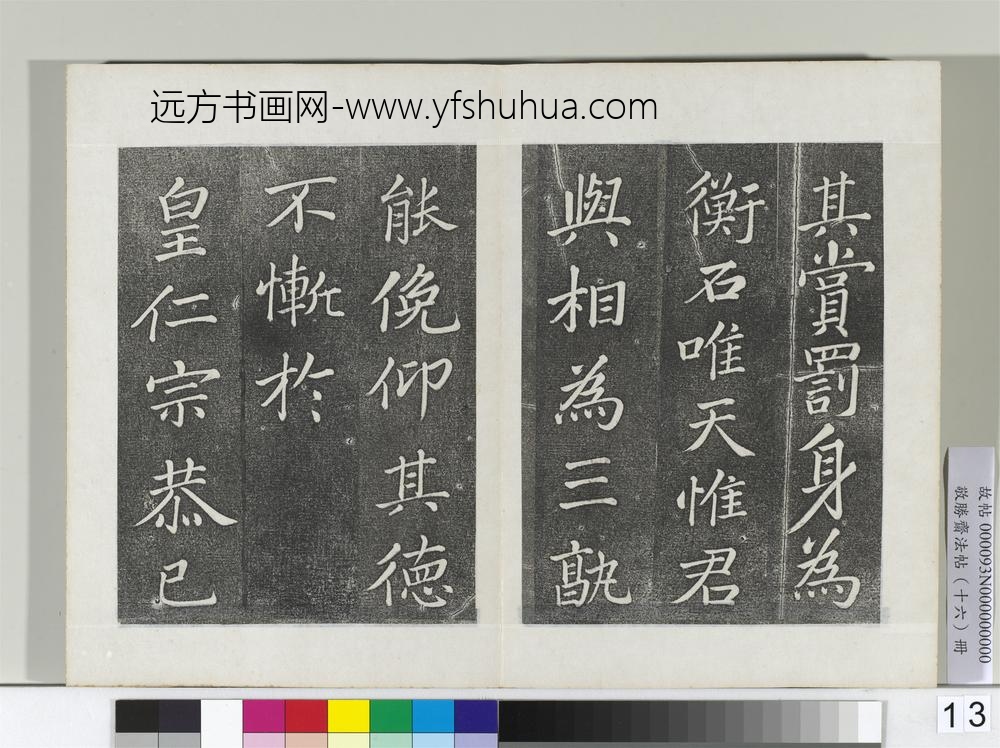 远方书画网-www.yfshuhua.com
其賞罰身為
衡石唯天惟君
與相為三孰
能俛仰其德
不慚於
皇仁宗恭己
故帖 000093N000000000
敬勝齋法帖（十六）冊
13